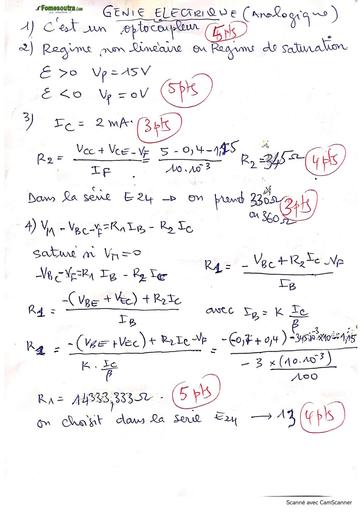 Fomesoutra.com
GENIE ELECTRIQUE (Analogique)
1) C'est un optocoupleur 5pts
2) Regime non lineaire ou Regime de saturation
ε > 0 Vp = 15V
ε < 0 Vp = 0V 5pts
3) Ic = 2 mA. 3pts
R2 = (Vcc + VCE - VF) / IF = (5 - 0,4 - 1,15) / (10.10⁻³) R2 = 345Ω 4pts
Dans la série E24 → on prend 330Ω ou 360Ω 3pts
4) VM - VBC - VF = R1 IB - R2 Ic
saturé si VM = 0
-VBC - VF = R1 IB - R2 Ic R1 = (-VBC + R2 Ic - VF) / IB
R1 = (-(VBE + VEC) + R2 Ic) / IB avec IB = K Ic/β
R1 = (-(VBE + VEC) + R2 Ic - VF) / (K. Ic/β) = / (-3 × (10.10⁻³) / 100)
R1 = 14333,333Ω. 5pts
on choisit dans la serie E24 → 13 4pts
Scanné avec CamScanner